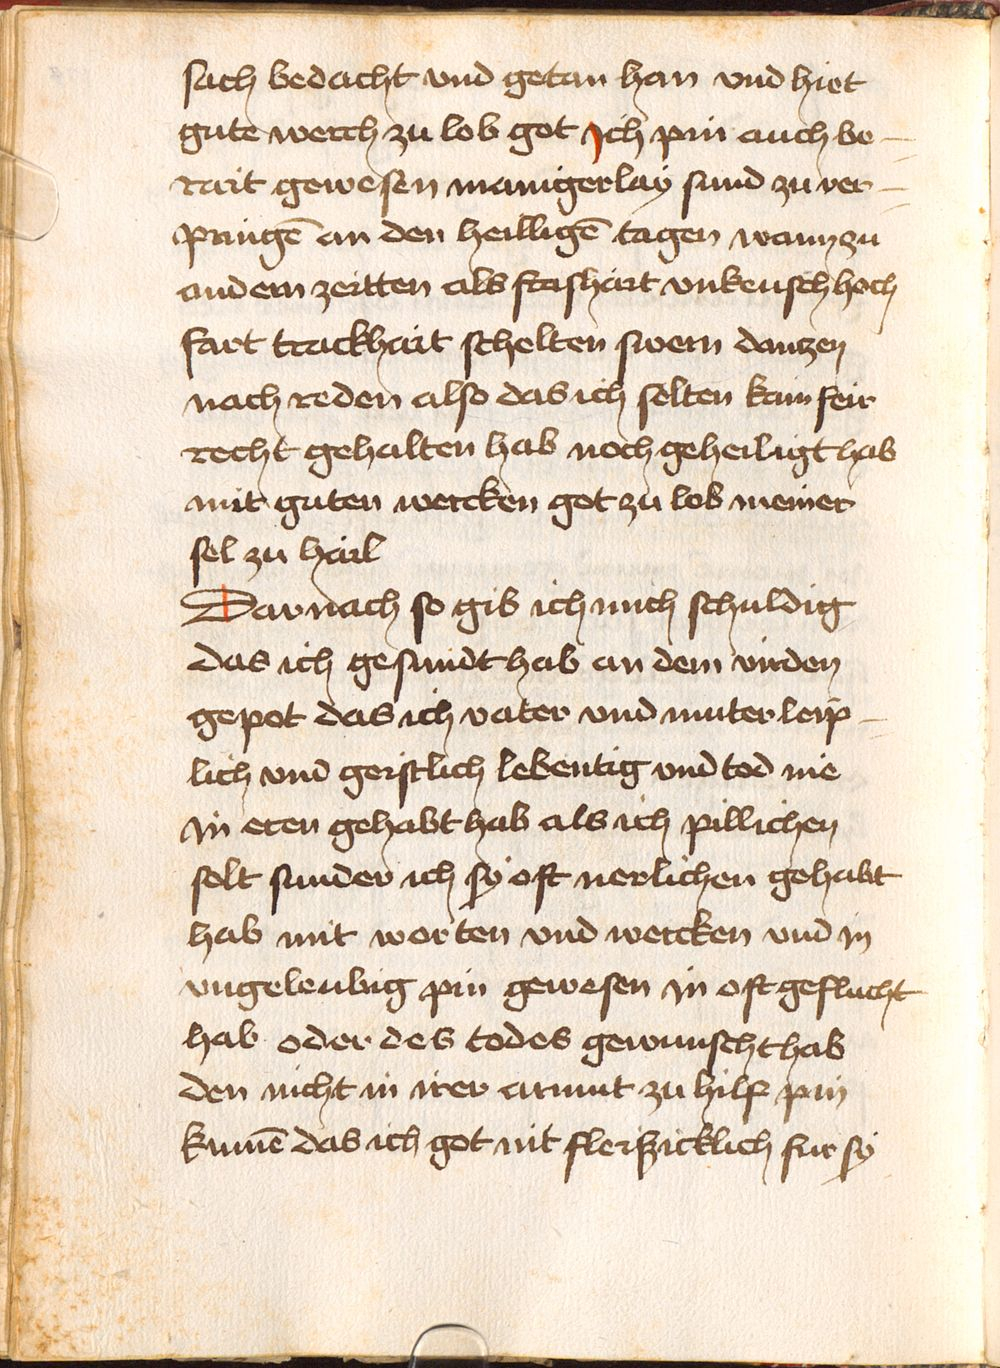 sach bedacht vnd getan han vnd hiet
gute werch zu lob got Ich pin auch be-
rait gewesen manigerlay sund zu ver-
pringē an den heilligē tagen wann zu
andern zeitten als frashait vnkeusch hoch
fart trackhait schelten swern dantzen
nach reden also das ich selten kain feir
recht gehalten hab noch geheiligt hab
mit guten wercken got zu lob meiner
sel zu hail
Darnach so gib ich mich schuldig
das ich gesundt hab an dem virden
gepot das ich vater vnd muter leip-
lich vnd geistlich lebentig vnd tod nie
In eren gehabt hab als ich pillichen
solt sunder ich sy oft vnerlichen gehabt
hab mit worten vnd wercken vnd In
vngeleubig pin gewesen In oft geflucht
hab oder des todes gewunscht hab
den nicht in irer armut zu hilf pin
kumē das ich got nit fleiszicklich fur sy